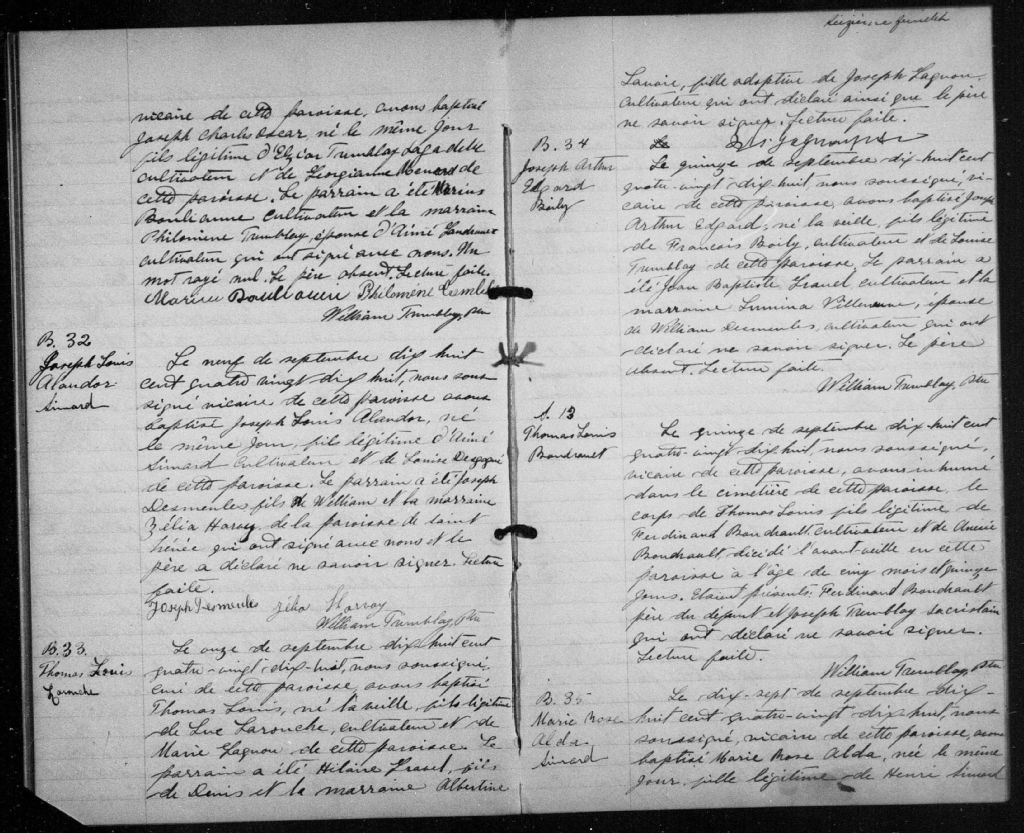 vicaire de cette paroisse, avons baptisé
Joseph Charles Oscar né le même jour
fils légitime d'Elzéar Tremblay
cultivateur et de Georgianne Menard de
cette paroisse. Le parrain a été Marius
Boulianne cultivateur et la marraine
Philomène Tremblay, épouse d'Aimé
cultivateur qui ont signé avec nous. Un
mot rayé nul. Le père absent. Lecture faite.
Marius Boulianne Philomène
William Tremblay, Ptre
B. 32
Joseph Louis
Alandor
Simard
Le neuf de septembre dix huit
cent quatre vingt dix huit, nous sous-
signé vicaire de cette paroisse avons
baptisé Joseph Louis Alandor, né
le même jour, fils légitime d'Aimé
Simard cultivateur et de Louise
de cette paroisse. Le parrain a été Joseph
Desmeules fils de William et la marraine
Zélia Harvey, de la paroisse de saint
Irénée qui ont signé avec nous et le
père a déclaré ne savoir signer. Lecture
faite.
Joseph Desmeules Zélia Harvay
William Tremblay, Ptre
B. 33.
Thomas Louis
Larouche
Le onze de septembre dix huit cent
quatre-vingt-dix-huit, nous soussigné,
curé de cette paroisse, avons baptisé
Thomas Louis, né la veille, fils légitime
de Luc Larouche, cultivateur et de
Marie Gagnon de cette paroisse. Le
parrain a été Hilaire Gravel, fils
de Denis et la marraine Albertine
feuillet
Lavoie, fille adoptive de Joseph Gagnon,
cultivateur qui ont déclaré ainsi que le père
ne savoir signer. Lecture faite.
B. 34
Joseph Arthur
Edgard
Boily
Le quinze de septembre dix-huit cent
quatre-vingt-dix-huit, nous soussigné, vi-
caire de cette paroisse, avons baptisé Joseph
Arthur Edgard, né la veille, fils légitime
de François Boily, cultivateur et de Louise
Tremblay de cette paroisse. Le parrain a
été Jean Baptiste Gravel cultivateur et la
marraine Lumina Villeneuve, épouse
de William Desmeules, cultivateur qui ont
déclaré ne savoir signer. Le père
absent. Lecture faite.
William Tremblay, Ptre
S. 13
Thomas Louis
Boudreault
Le quinze de septembre dix-huit cent
quatre-vingt dix huit, nous soussigné,
vicaire de cette paroisse, avons inhumé
dans le cimetière de cette paroisse, le
corps de Thomas Louis fils légitime de
Ferdinand Boudrault cultivateur et de
Boudrault décédé l'avant-veille en cette
paroisse à l'âge de cinq mois et quinze
jours. Etaient présents: Ferdinand Boudrault
père du défunt et Joseph Tremblay sacristain
qui ont déclaré ne savoir signer.
Lecture faite.
William Tremblay, Ptre
B. 35
Marie Rose
Alda
Simard
Le dix-sept de septembre dix-
huit cent quatre-vingt dix huit, nous
soussigné, vicaire de cette paroisse, avons
baptisé Marie Rose Alda, née le même
jour, fille légitime de Henri Simard